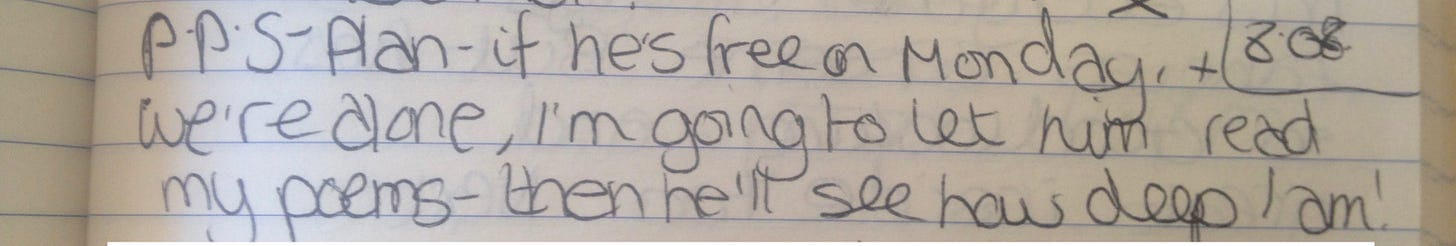 P.P.S- Plan - if he's free on Monday, + 8:08
we're alone, I'm going to let him read
my poems - then he'll see how deep I am!